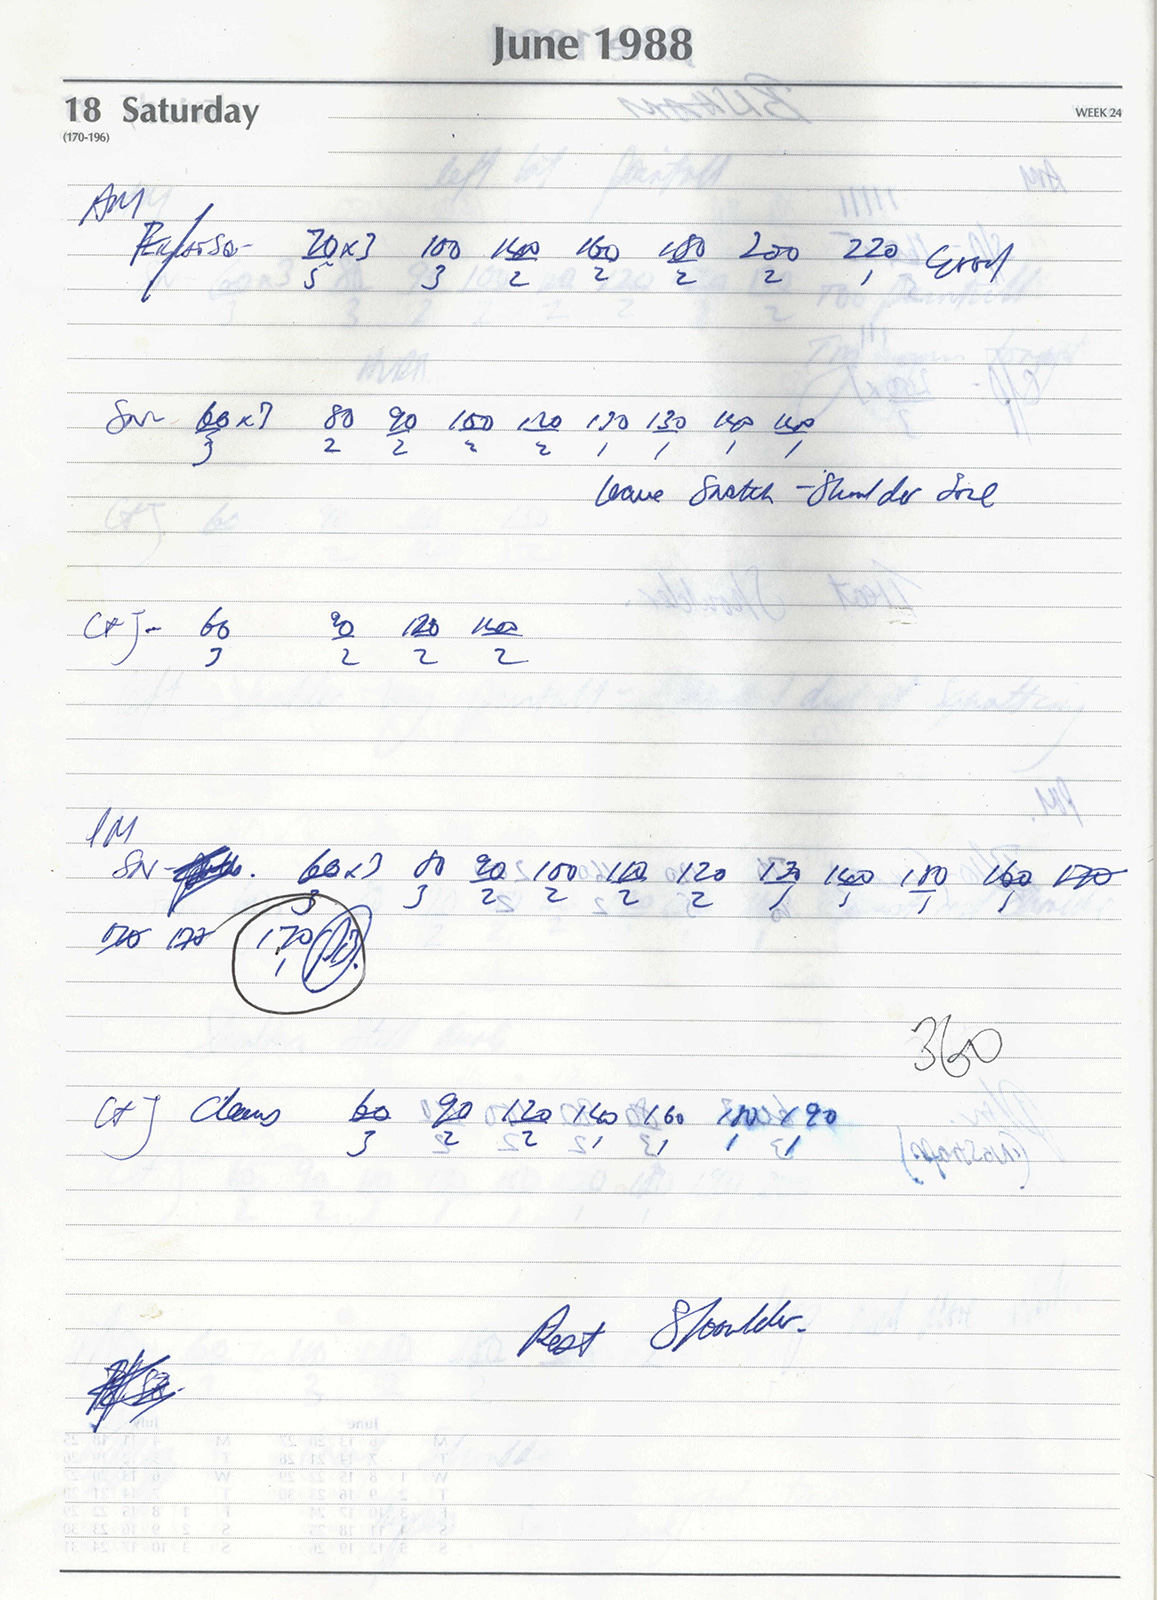 June 1988
18 Saturday
WEEK 24
(170-196)
AM
70x3 100 140 160 180 200 220 Good
5 3 2 2 2 2 1
Sn- 60x3 80 90 100 120 130 130 140 140
3 2 2 2 2 1 1 1 1
leave Snatch - Shoulder Sore
C+J- 60 90 120 140
3 2 2 2
PM
SN- 60x3 80 90 100 110 120 130 140 150 160 170
3 3 2 2 2 2 1 1 1 1
170 170 170
1
360
C+J Cleans 60 90 120 140 160 180 190
3 2 2 1 1 1 1
Rest Shoulder.